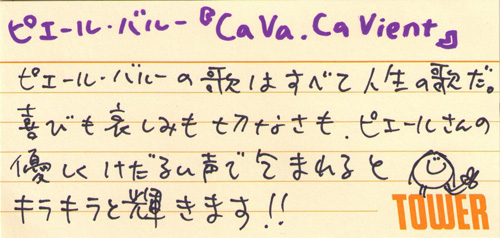 ピエール・バルー『CaVa. Ca Vient』
ピエール・バルーの歌はすべて人生の歌だ。
喜びも哀しみも切なさも、ピエールさんの
優しくけだるい声で包まれると
キラキラと輝きます!!
TOWER